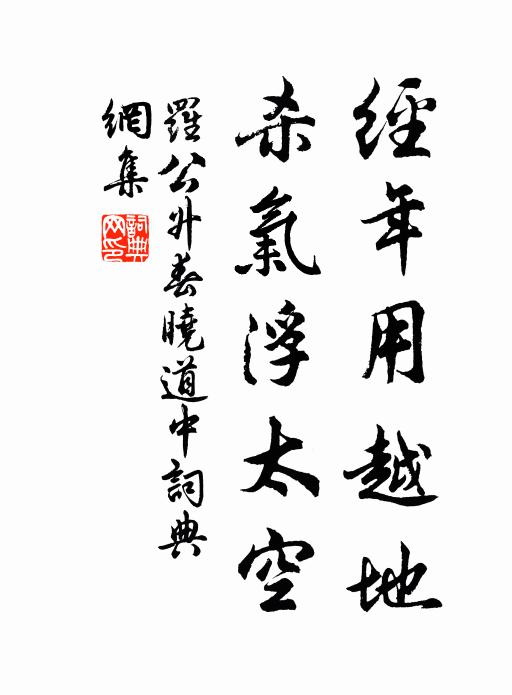 經年用越地
杀氣浮太空
羅公升春曉道中詞典
網集
詞典网印